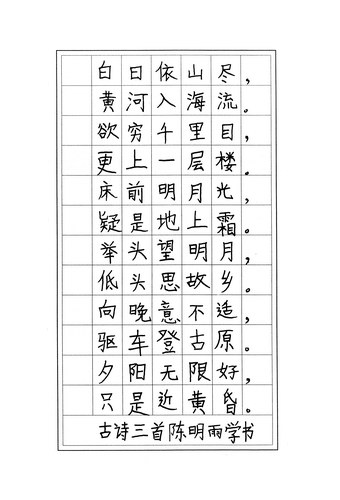 白日依山尽，
黄河入海流。
欲穷千里目，
更上一层楼。
床前明月光，
疑是地上霜。
举头望明月，
低头思故乡。
向晚意不适，
驱车登古原。
夕阳无限好，
只是近黄昏。
古诗三首陈明雨学书